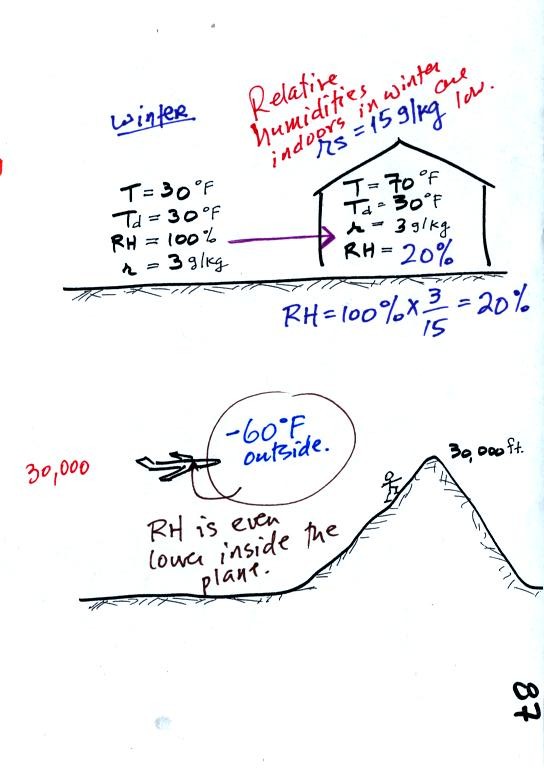 winter
Relative
humidities
indoors in winter
are
low.
rs = 15 g/kg
T = 30°F
Td = 30°F
RH = 100%
r = 3 g/kg
T = 70°F
Td = 30°F
r = 3 g/kg
RH = 20%
RH = 100% × 3/15 = 20%
-60°F
outside.
30,000
30,000 ft.
RH is even
lower inside the
plane.
87